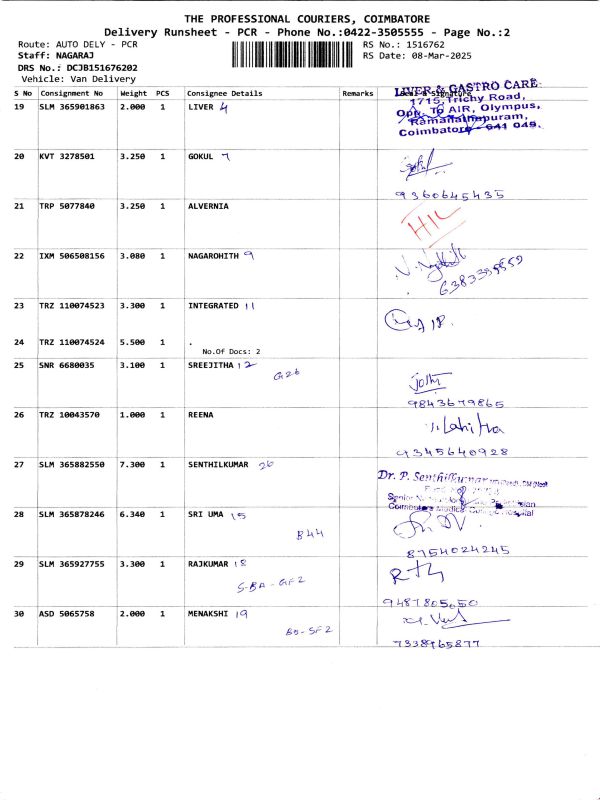 THE PROFESSIONAL COURIERS, COIMBATORE
Delivery Runsheet - PCR - Phone No.:0422-3505555 - Page No.:2
Route: AUTO DELY - PCR RS No.: 1516762
Staff: NAGARAJ RS Date: 08-Mar-2025
DRS No.: DCJB151676202
Vehicle: Van Delivery
S No Consignment No Weight PCS Consignee Details Remarks
19 SLM 365901863 2.000 1 LIVER 4
LIVER & GASTRO CARE
1715, Trichy Road,
Opp. To AIR, Olympus,
Ramanathapuram,
Coimbatore - 641 045.
20 KVT 3278501 3.250 1 GOKUL 7
9360645435
21 TRP 5077840 3.250 1 ALVERNIA
22 IXM 506508156 3.080 1 NAGAROHITH 9
6383359559
23 TRZ 110074523 3.300 1 INTEGRATED 11
24 TRZ 110074524 5.500 1 .
No.Of Docs: 2
25 SNR 6680035 3.100 1 SREEJITHA 12
G26
Jothi
9843679865
26 TRZ 10043570 1.000 1 REENA
Lalitha
9345640928
27 SLM 365882550 7.300 1 SENTHILKUMAR 26
Dr. P. Senthilkumar
Coimbatore Medical College Hospital
28 SLM 365878246 6.340 1 SRI UMA 15
B44
8754024245
29 SLM 365927755 3.300 1 RAJKUMAR 18
S-BA-GF2
9487805050
30 ASD 5065758 2.000 1 MENAKSHI 19
B0-SF2
7338965877